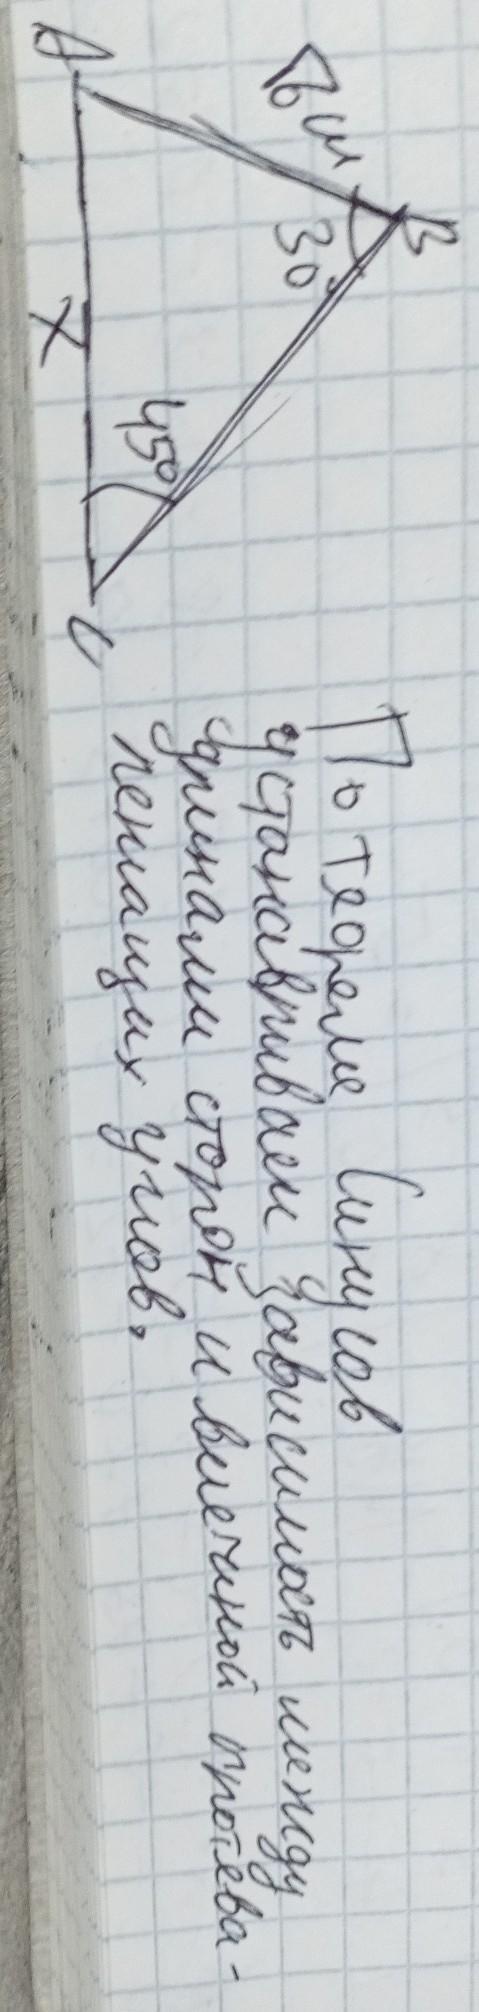 B
30°
45°
A
x
C
По теореме Синусов
устанавливаем зависимость между
длинами сторон и вместиной протева-
лежащих углов.